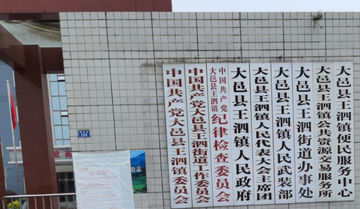 中国共产党大邑县王泗镇委员会
中国共产党大邑县王泗街道工作委员会
中国共产党大邑县王泗镇纪律检查委员会
大邑县王泗镇人民政府
大邑县王泗镇人民代表大会主席团
大邑县王泗镇人民武装部
大邑县王泗街道办事处
大邑县王泗镇公共资源交易服务所
大邑县王泗镇便民服务中心